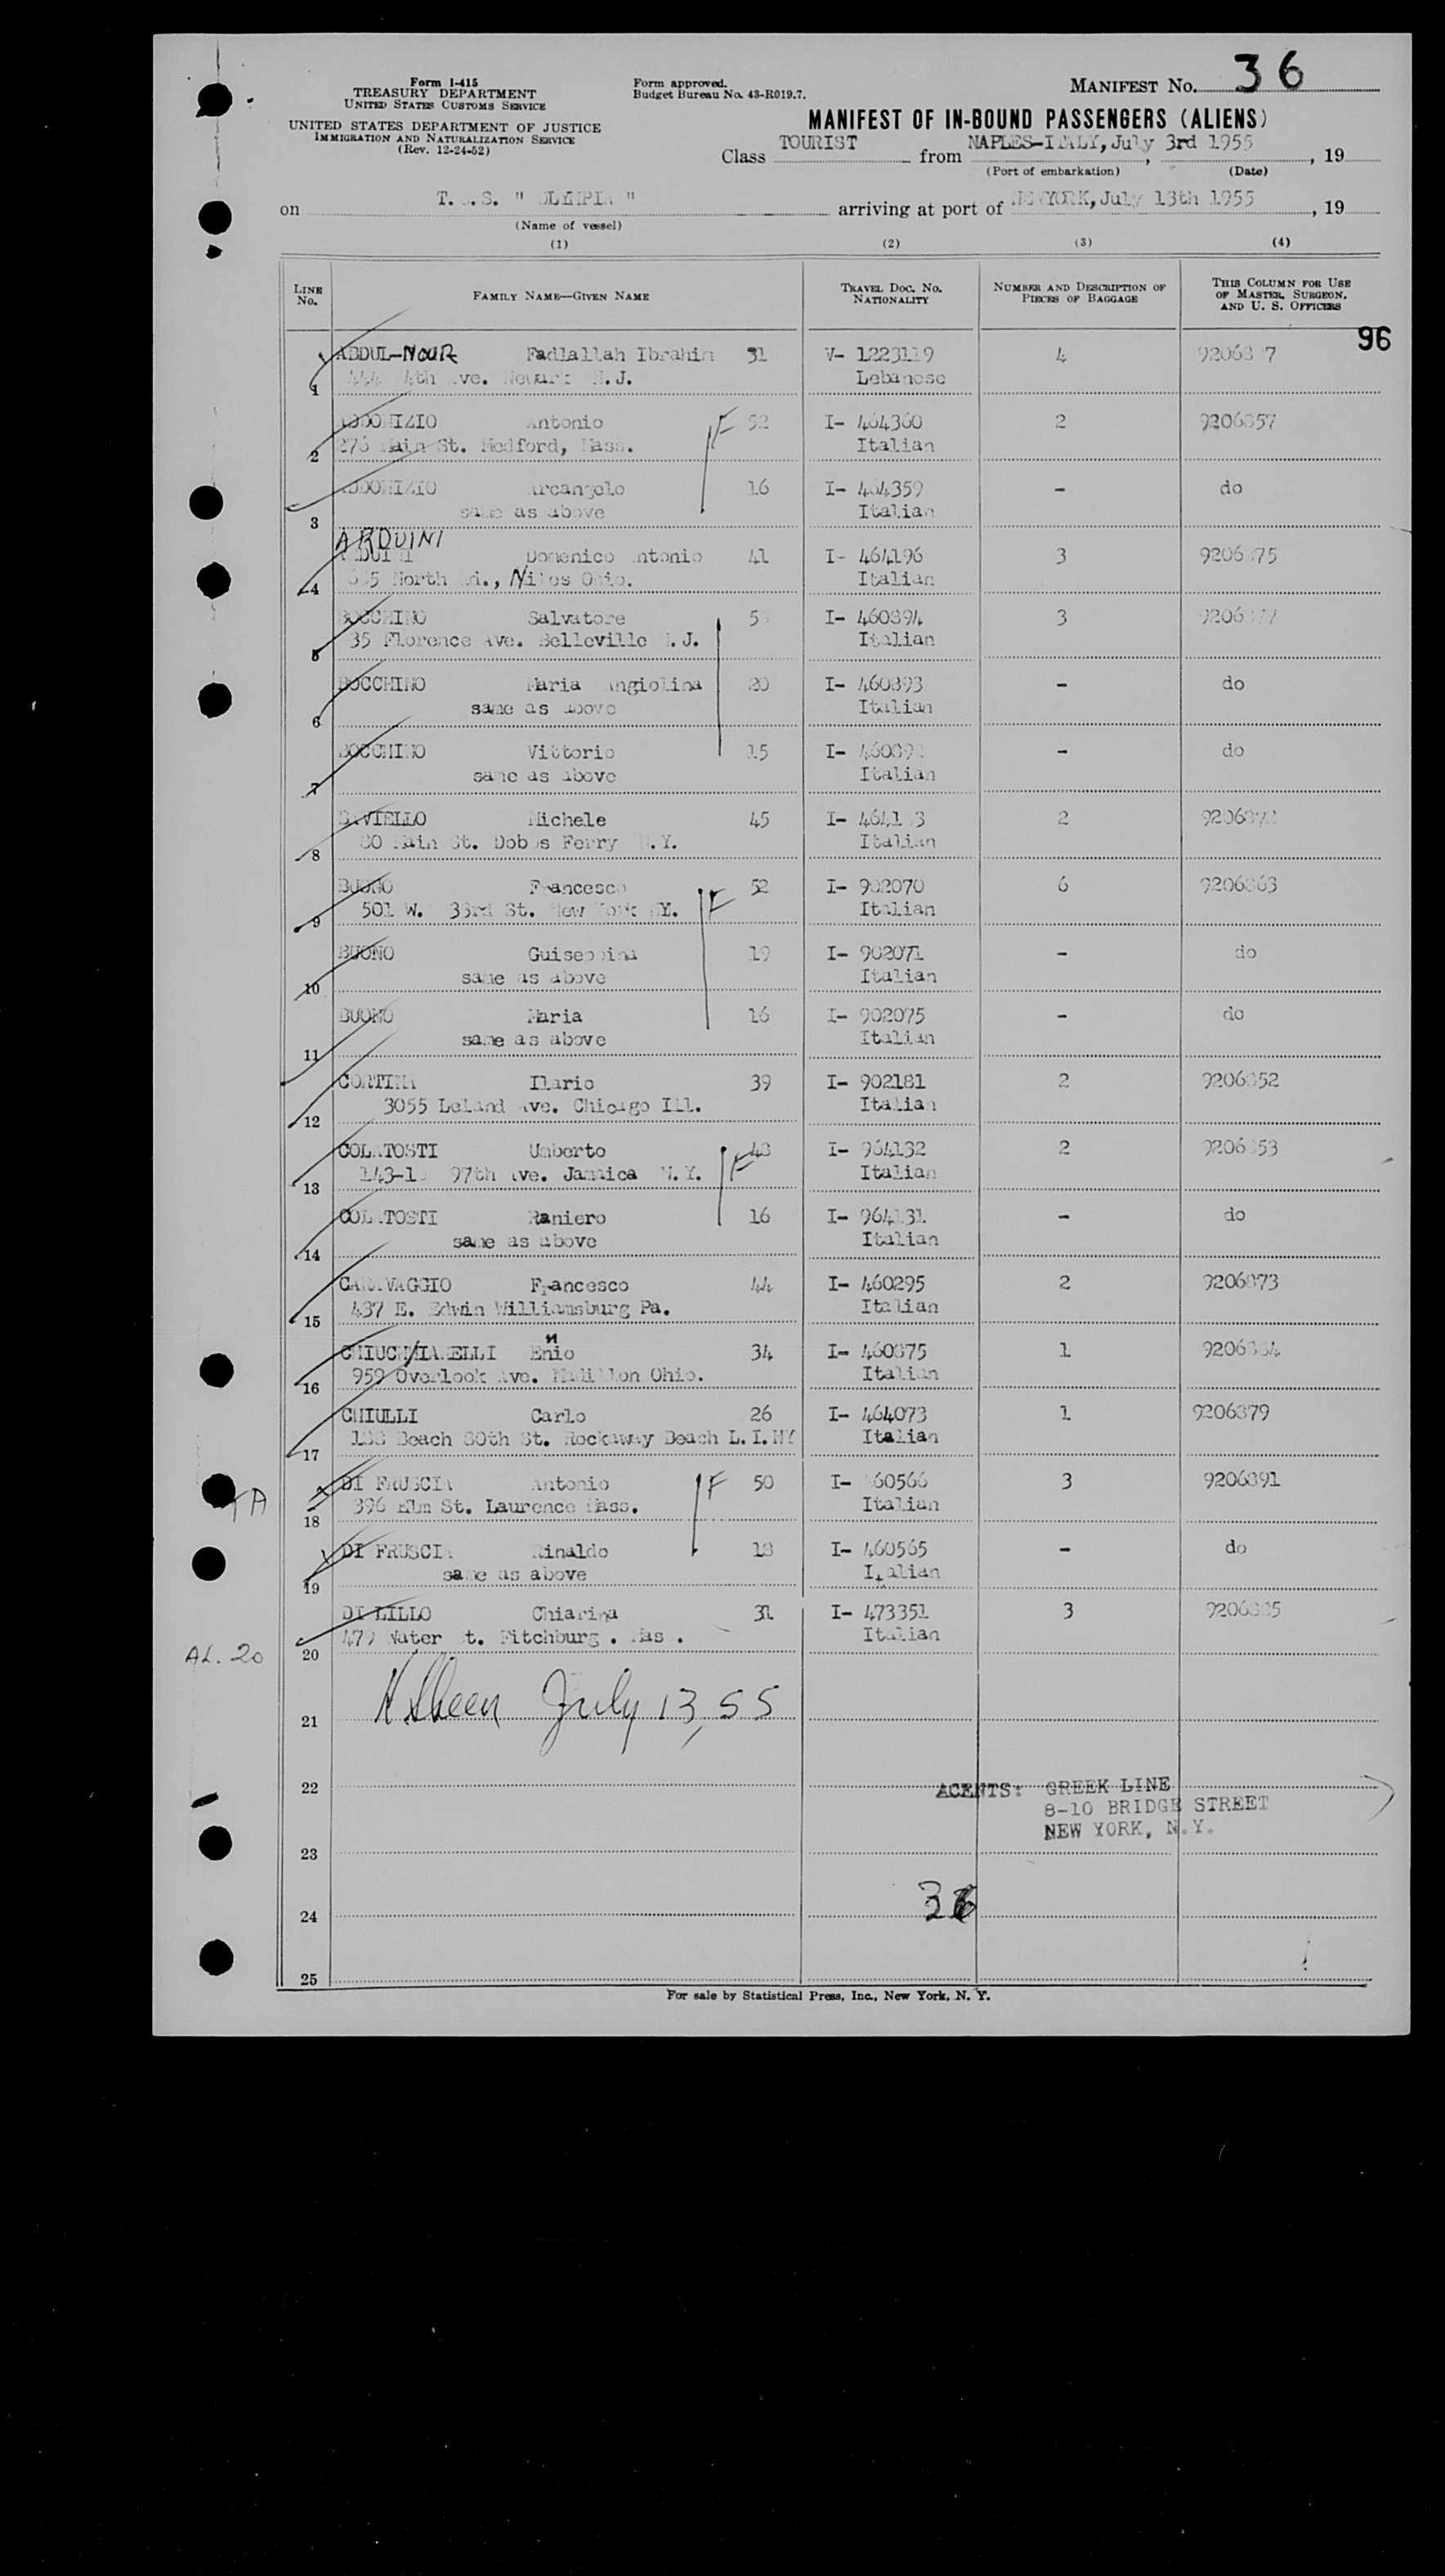 Form I-415
TREASURY DEPARTMENT
UNITED STATES CUSTOMS SERVICE
UNITED STATES DEPARTMENT OF JUSTICE
IMMIGRATION AND NATURALIZATION SERVICE
(Rev. 12-24-52)
Form approved.
Budget Bureau No. 43-R019.7.
MANIFEST No. 36
MANIFEST OF IN-BOUND PASSENGERS (ALIENS)
Class TOURIST from NAPLES-ITALY, July 3rd 1955, 19
(Port of embarkation) (Date)
on T. S. " OLYMPIA " arriving at port of NEWYORK, July 13th 1955, 19
(Name of vessel)
(1) (2) (3) (4)
LINE No. FAMILY NAME—GIVEN NAME TRAVEL DOC. No. NATIONALITY NUMBER AND DESCRIPTION OF PIECES OF BAGGAGE THIS COLUMN FOR USE OF MASTER, SURGEON, AND U. S. OFFICERS
96
ABDUL-NOUR Fadlallah Ibrahim 31 V- 1223119 4
1 444 4th Ave. Newark N.J. Lebanese
ADDONIZIO Antonio F 52 I- 464360 2 9206857
2 276 Main St. Medford, Mass. Italian
ADDONIZIO Arcangelo 16 I- 464359 - do
3 same as above Italian
ARDUINI
ARDUINI Domenico Antonio 41 I- 464196 3
4 North Rd., Niles Ohio. Italian
BOCCHINO Salvatore I- 460894 3
5 35 Florence Ave. Belleville N.J. Italian
BOCCHINO Maria Angiolina 20 I- 460893 - do
6 same as above Italian
BOCCHINO Vittorio 15 I- - do
7 same as above Italian
BAVIELLO Michele 45 I- 2
8 Main St. Dobbs Ferry N.Y. Italian
BUONO Francesco F 52 I- 902070 6 9206863
9 501 W. 33rd St. New York NY. Italian
BUONO Guiseppina 19 I- 902071 - do
10 same as above Italian
BUONO Maria 16 I- 902075 - do
11 same as above Italian
CORTINA Ilario 39 I- 902181 2 9206852
12 3055 Leland Ave. Chicago Ill. Italian
COLATOSTI Umberto F 48 I- 964132 2 9206853
13 97th Ave. Jamaica N.Y. Italian
COLATOSTI Raniero 16 I- 964131 - do
14 same as above Italian
CARAVAGGIO Francesco 44 I- 460295 2 9206873
15 437 E. Edwin Williamsburg Pa. Italian
n
Enio 34 I- 460875 1
16 959 Overlook Ave. Ohio. Italian
CHIULLI Carlo 26 I- 464073 1 9206879
17 Beach 80th St. Rockaway Beach L.I.NY Italian
DI FRUSCIA Antonio F 50 I- 460566 3 9206891
18 396 Elm St. Laurence Mass. Italian
DI FRUSCIA Rinaldo 18 I- 460565 - do
19 same as above Italian
DI LILLO Chiarina 31 I- 473351 3
20 479 Water St. Fitchburg . Mas .  Italian
AL. 20
21 July 13, 55
22 AGENTS: GREEK LINE
8-10 BRIDGE STREET
NEW YORK, N.Y.
23
24 36
25
For sale by Statistical Press, Inc., New York, N. Y.